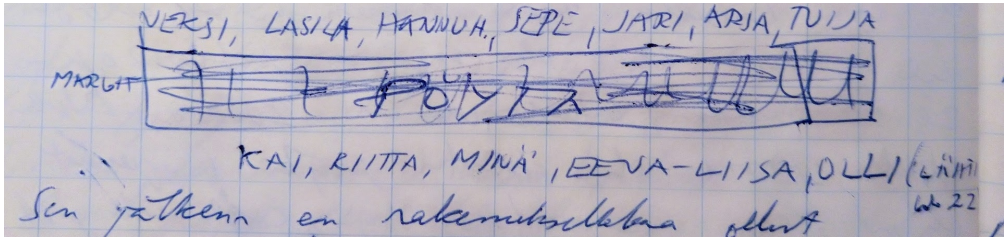 VEKSI, LASILA, HANNU H., SEPE, JARI, ARJA, TUIJA
MARGIT
PÖYTÄ
KAI, RIITTA, MINÄ, EEVA-LIISA, OLLI
Sen jälkeen en rakennuksellakaan ollut